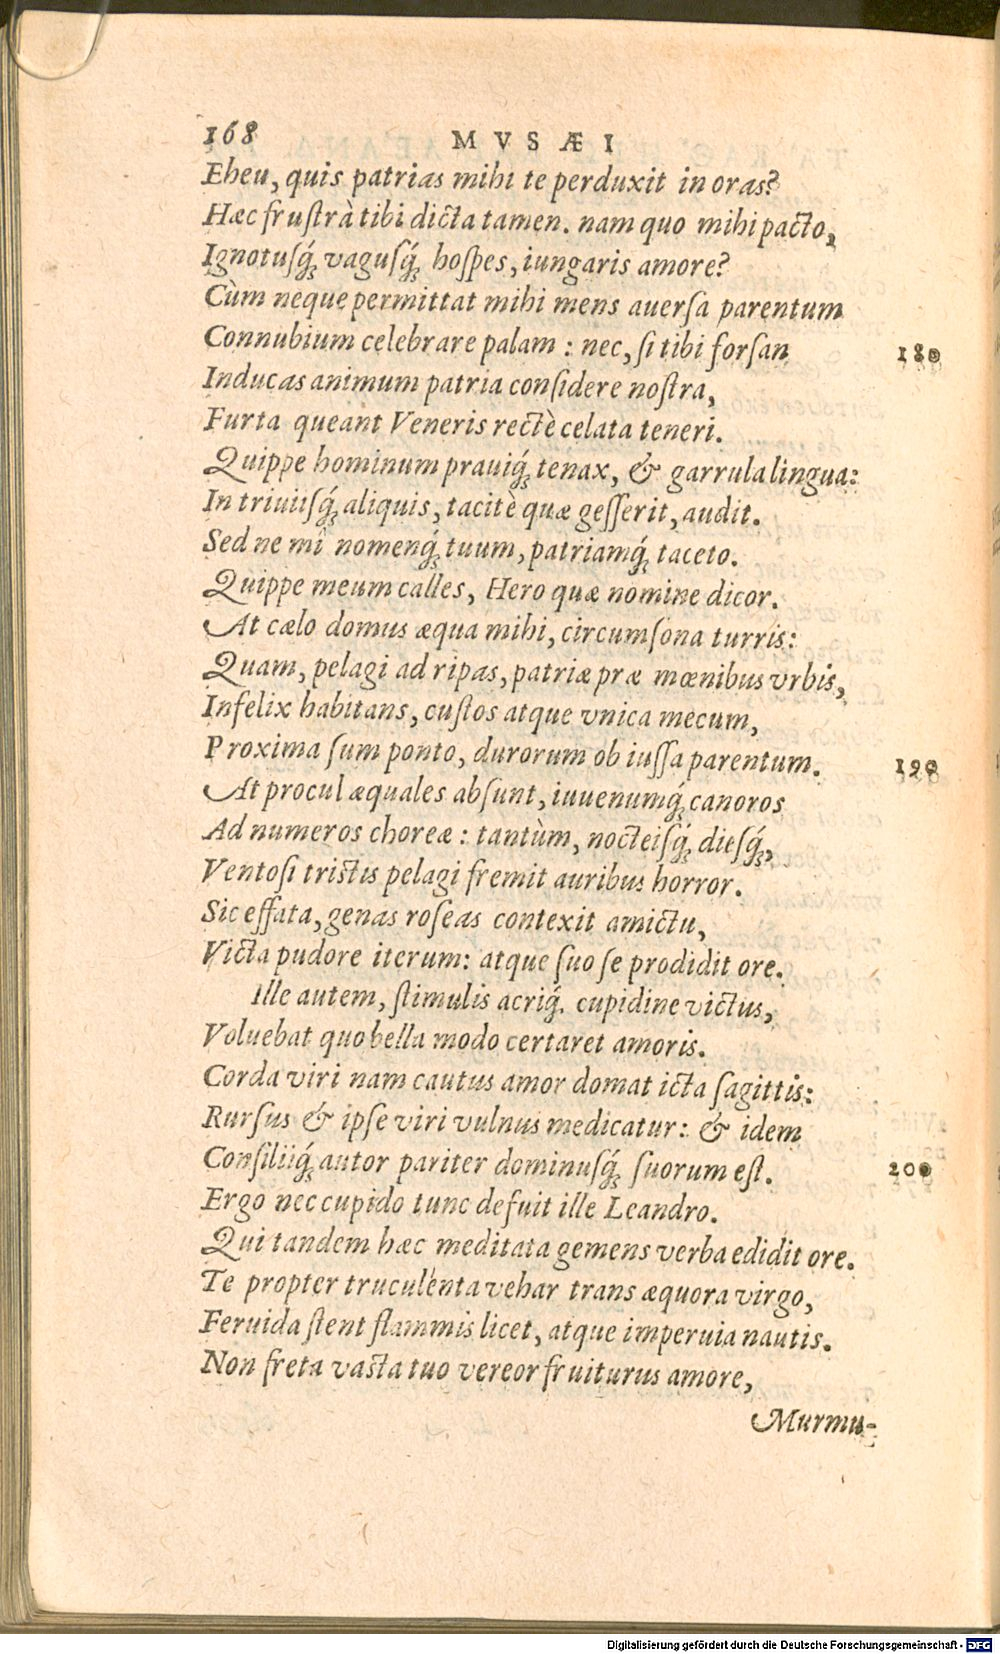 168 MVSÆI
Eheu, quis patrias mihi te perduxit in oras?
Hæc frustrà tibi dicta tamen. nam quo mihi pacto,
Ignotusq́; vagusq́; hospes, iungaris amore?
Cùm neque permittat mihi mens auersa parentum
Connubium celebrare palam : nec, si tibi forsan 180
Inducas animum patria considere nostra,
Furta queant Veneris rectè celata teneri.
Quippe hominum prauiq́; tenax, & garrula lingua:
In triuiisq́; aliquis, tacitè quæ gesserit, audit.
Sed ne mî nomenq́; tuum, patriamq́; taceto.
Quippe meum calles, Hero quæ nomine dicor.
At cælo domus æqua mihi, circumsona turris:
Quam, pelagi ad ripas, patriæ præ mœnibus vrbis,
Infelix habitans, custos atque vnica mecum,
Proxima sum ponto, durorum ob iussa parentum. 190
At procul æquales absunt, iuuenumq́; canoros
Ad numeros choreæ : tantùm, nocteisq́; diesq́;,
Ventosi tristis pelagi fremit auribus horror.
Sic effata, genas roseas contexit amictu,
Victa pudore iterum: atque suo se prodidit ore.
Ille autem, stimulis acriq́; cupidine victus,
Voluebat quo bella modo certaret amoris.
Corda viri nam cautus amor domat icta sagittis:
Rursus & ipse viri vulnus medicatur: & idem
Consiliiq́; autor pariter dominusq́; suorum est. 200
Ergo nec cupido tunc defuit ille Leandro.
Qui tandem hæc meditata gemens verba edidit ore.
Te propter truculenta vehar trans æquora virgo,
Feruida stent flammis licet, atque imperuia nautis.
Non freta vasta tuo vereor fruiturus amore,
Murmu-
Digitalisierung gefördert durch die Deutsche Forschungsgemeinschaft - DFG